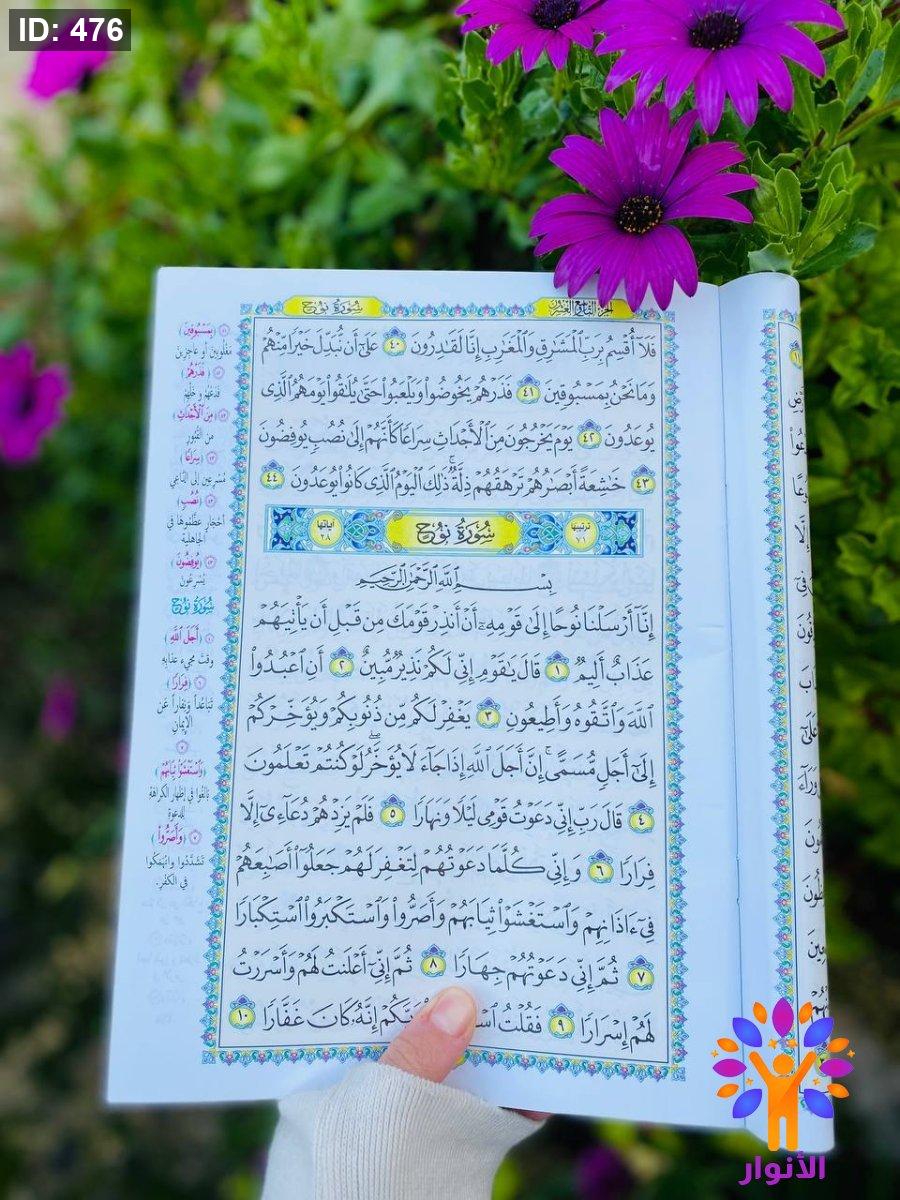 ID: 476
سُورَةُ نُوحٍ
الجزء التاسع والعشرون
فَلَآ أُقْسِمُ بِرَبِّ ٱلْمَشَٰرِقِ وَٱلْمَغَٰرِبِ إِنَّا لَقَٰدِرُونَ ٤٠ عَلَىٰٓ أَن نُّبَدِّلَ خَيْرًا مِّنْهُمْ
وَمَا نَحْنُ بِمَسْبُوقِينَ ٤١ فَذَرْهُمْ يَخُوضُوا۟ وَيَلْعَبُوا۟ حَتَّىٰ يُلَٰقُوا۟ يَوْمَهُمُ ٱلَّذِى
يُوعَدُونَ ٤٢ يَوْمَ يَخْرُجُونَ مِنَ ٱلْأَجْدَاثِ سِرَاعًا كَأَنَّهُمْ إِلَىٰ نُصُبٍ يُوفِضُونَ
٤٣ خَٰشِعَةً أَبْصَٰرُهُمْ تَرْهَقُهُمْ ذِلَّةٌ ۚ ذَٰلِكَ ٱلْيَوْمُ ٱلَّذِى كَانُوا۟ يُوعَدُونَ ٤٤
ترتيبها ٧١ سُورَةُ نُوحٍ آياتها ٢٨
بِسْمِ ٱللَّهِ ٱلرَّحْمَٰنِ ٱلرَّحِيمِ
إِنَّآ أَرْسَلْنَا نُوحًا إِلَىٰ قَوْمِهِۦٓ أَنْ أَنذِرْ قَوْمَكَ مِن قَبْلِ أَن يَأْتِيَهُمْ
عَذَابٌ أَلِيمٌ ١ قَالَ يَٰقَوْمِ إِنِّى لَكُمْ نَذِيرٌ مُّبِينٌ ٢ أَنِ ٱعْبُدُوا۟
ٱللَّهَ وَٱتَّقُوهُ وَأَطِيعُونِ ٣ يَغْفِرْ لَكُم مِّن ذُنُوبِكُمْ وَيُؤَخِّرْكُمْ
إِلَىٰٓ أَجَلٍ مُّسَمًّى ۚ إِنَّ أَجَلَ ٱللَّهِ إِذَا جَآءَ لَا يُؤَخَّرُ ۖ لَوْ كُنتُمْ تَعْلَمُونَ
٤ قَالَ رَبِّ إِنِّى دَعَوْتُ قَوْمِى لَيْلًا وَنَهَارًا ٥ فَلَمْ يَزِدْهُمْ دُعَآءِىٓ إِلَّا
فِرَارًا ٦ وَإِنِّى كُلَّمَا دَعَوْتُهُمْ لِتَغْفِرَ لَهُمْ جَعَلُوٓا۟ أَصَٰبِعَهُمْ
فِىٓ ءَاذَانِهِمْ وَٱسْتَغْشَوْا۟ ثِيَابَهُمْ وَأَصَرُّوا۟ وَٱسْتَكْبَرُوا۟ ٱسْتِكْبَارًا
٧ ثُمَّ إِنِّى دَعَوْتُهُمْ جِهَارًا ٨ ثُمَّ إِنِّىٓ أَعْلَنتُ لَهُمْ وَأَسْرَرْتُ
لَهُمْ إِسْرَارًا ٩ فَقُلْتُ رَبَّكُمْ إِنَّهُۥ كَانَ غَفَّارًا ١٠
٤١ (بِمَسْبُوقِينَ)
مغلوبين أو عاجزين
٤٢ (فَذَرْهُمْ)
فدعهم وخلهم
٤٣ (مِنَ ٱلْأَجْدَاثِ)
من القبور
٤٣ (سِرَاعًا)
مسرعين إلى الداعي
٤٣ (نُصُبٍ)
أحجار عظموها في
الجاهلية
٤٣ (يُوفِضُونَ)
يسرعون
سُورَةُ نُوحٍ
٤ (أَجَلَ ٱللَّهِ)
وقت مجيء عذابه
٦ (فِرَارًا)
تباعدًا ونفارًا عن
الإيمان
٧
(وَٱسْتَغْشَوْا۟ ثِيَابَهُمْ)
بالغوا في إظهار الكراهة
للدعوة
٧ (وَأَصَرُّوا۟)
تشددوا وانهمكوا
في الكفر.
الأنوار